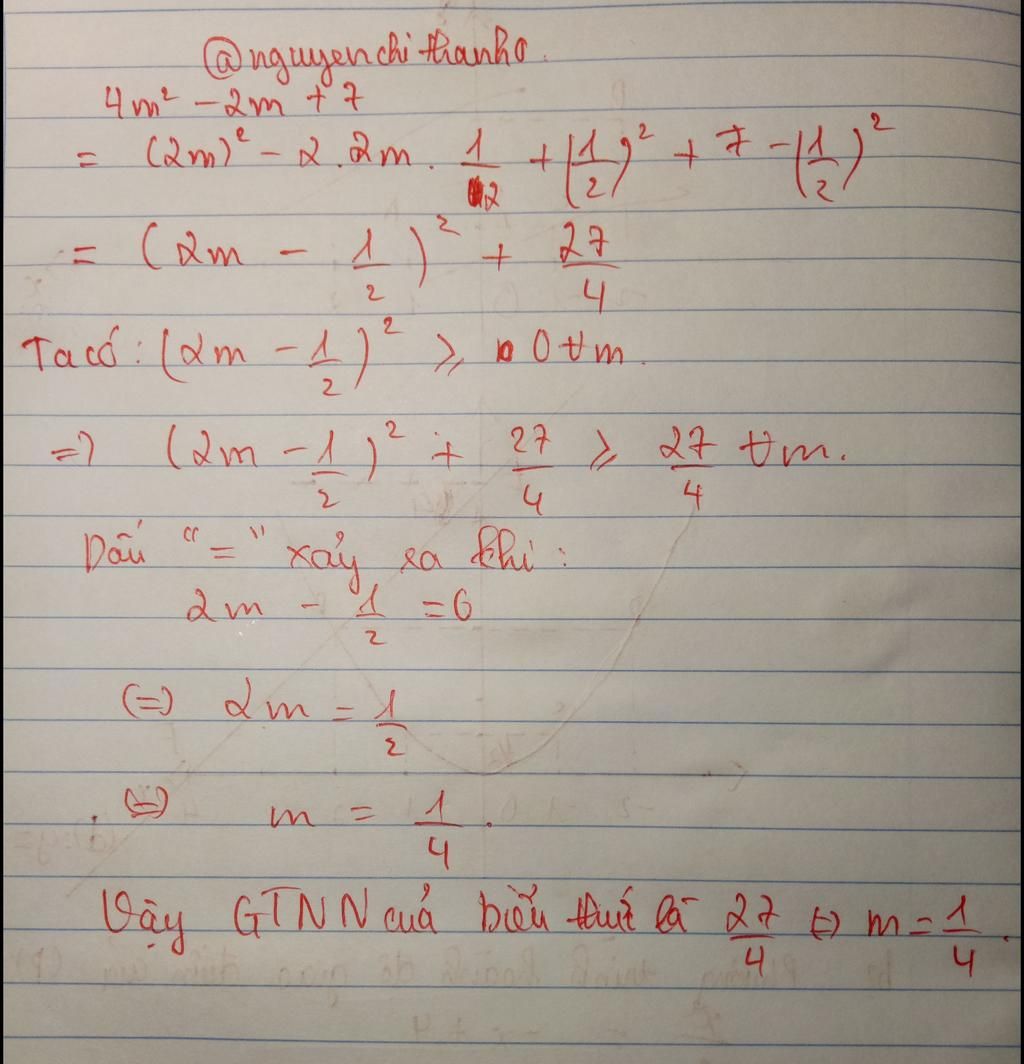 @nguyenchithanh0.
4m² - 2m + 7
= (2m)² - 2.2m. 1/2 + (1/2)² + 7 - (1/2)²
= (2m - 1/2)² + 27/4
Ta có: (2m - 1/2)² ⩾ 0 ∀m.
=> (2m - 1/2)² + 27/4 ⩾ 27/4 ∀m.
Dấu "=" xảy ra khi:
2m - 1/2 = 0
(=) 2m = 1/2
(=) m = 1/4.
Vậy GTNN của biểu thức là 27/4 (=) m = 1/4.